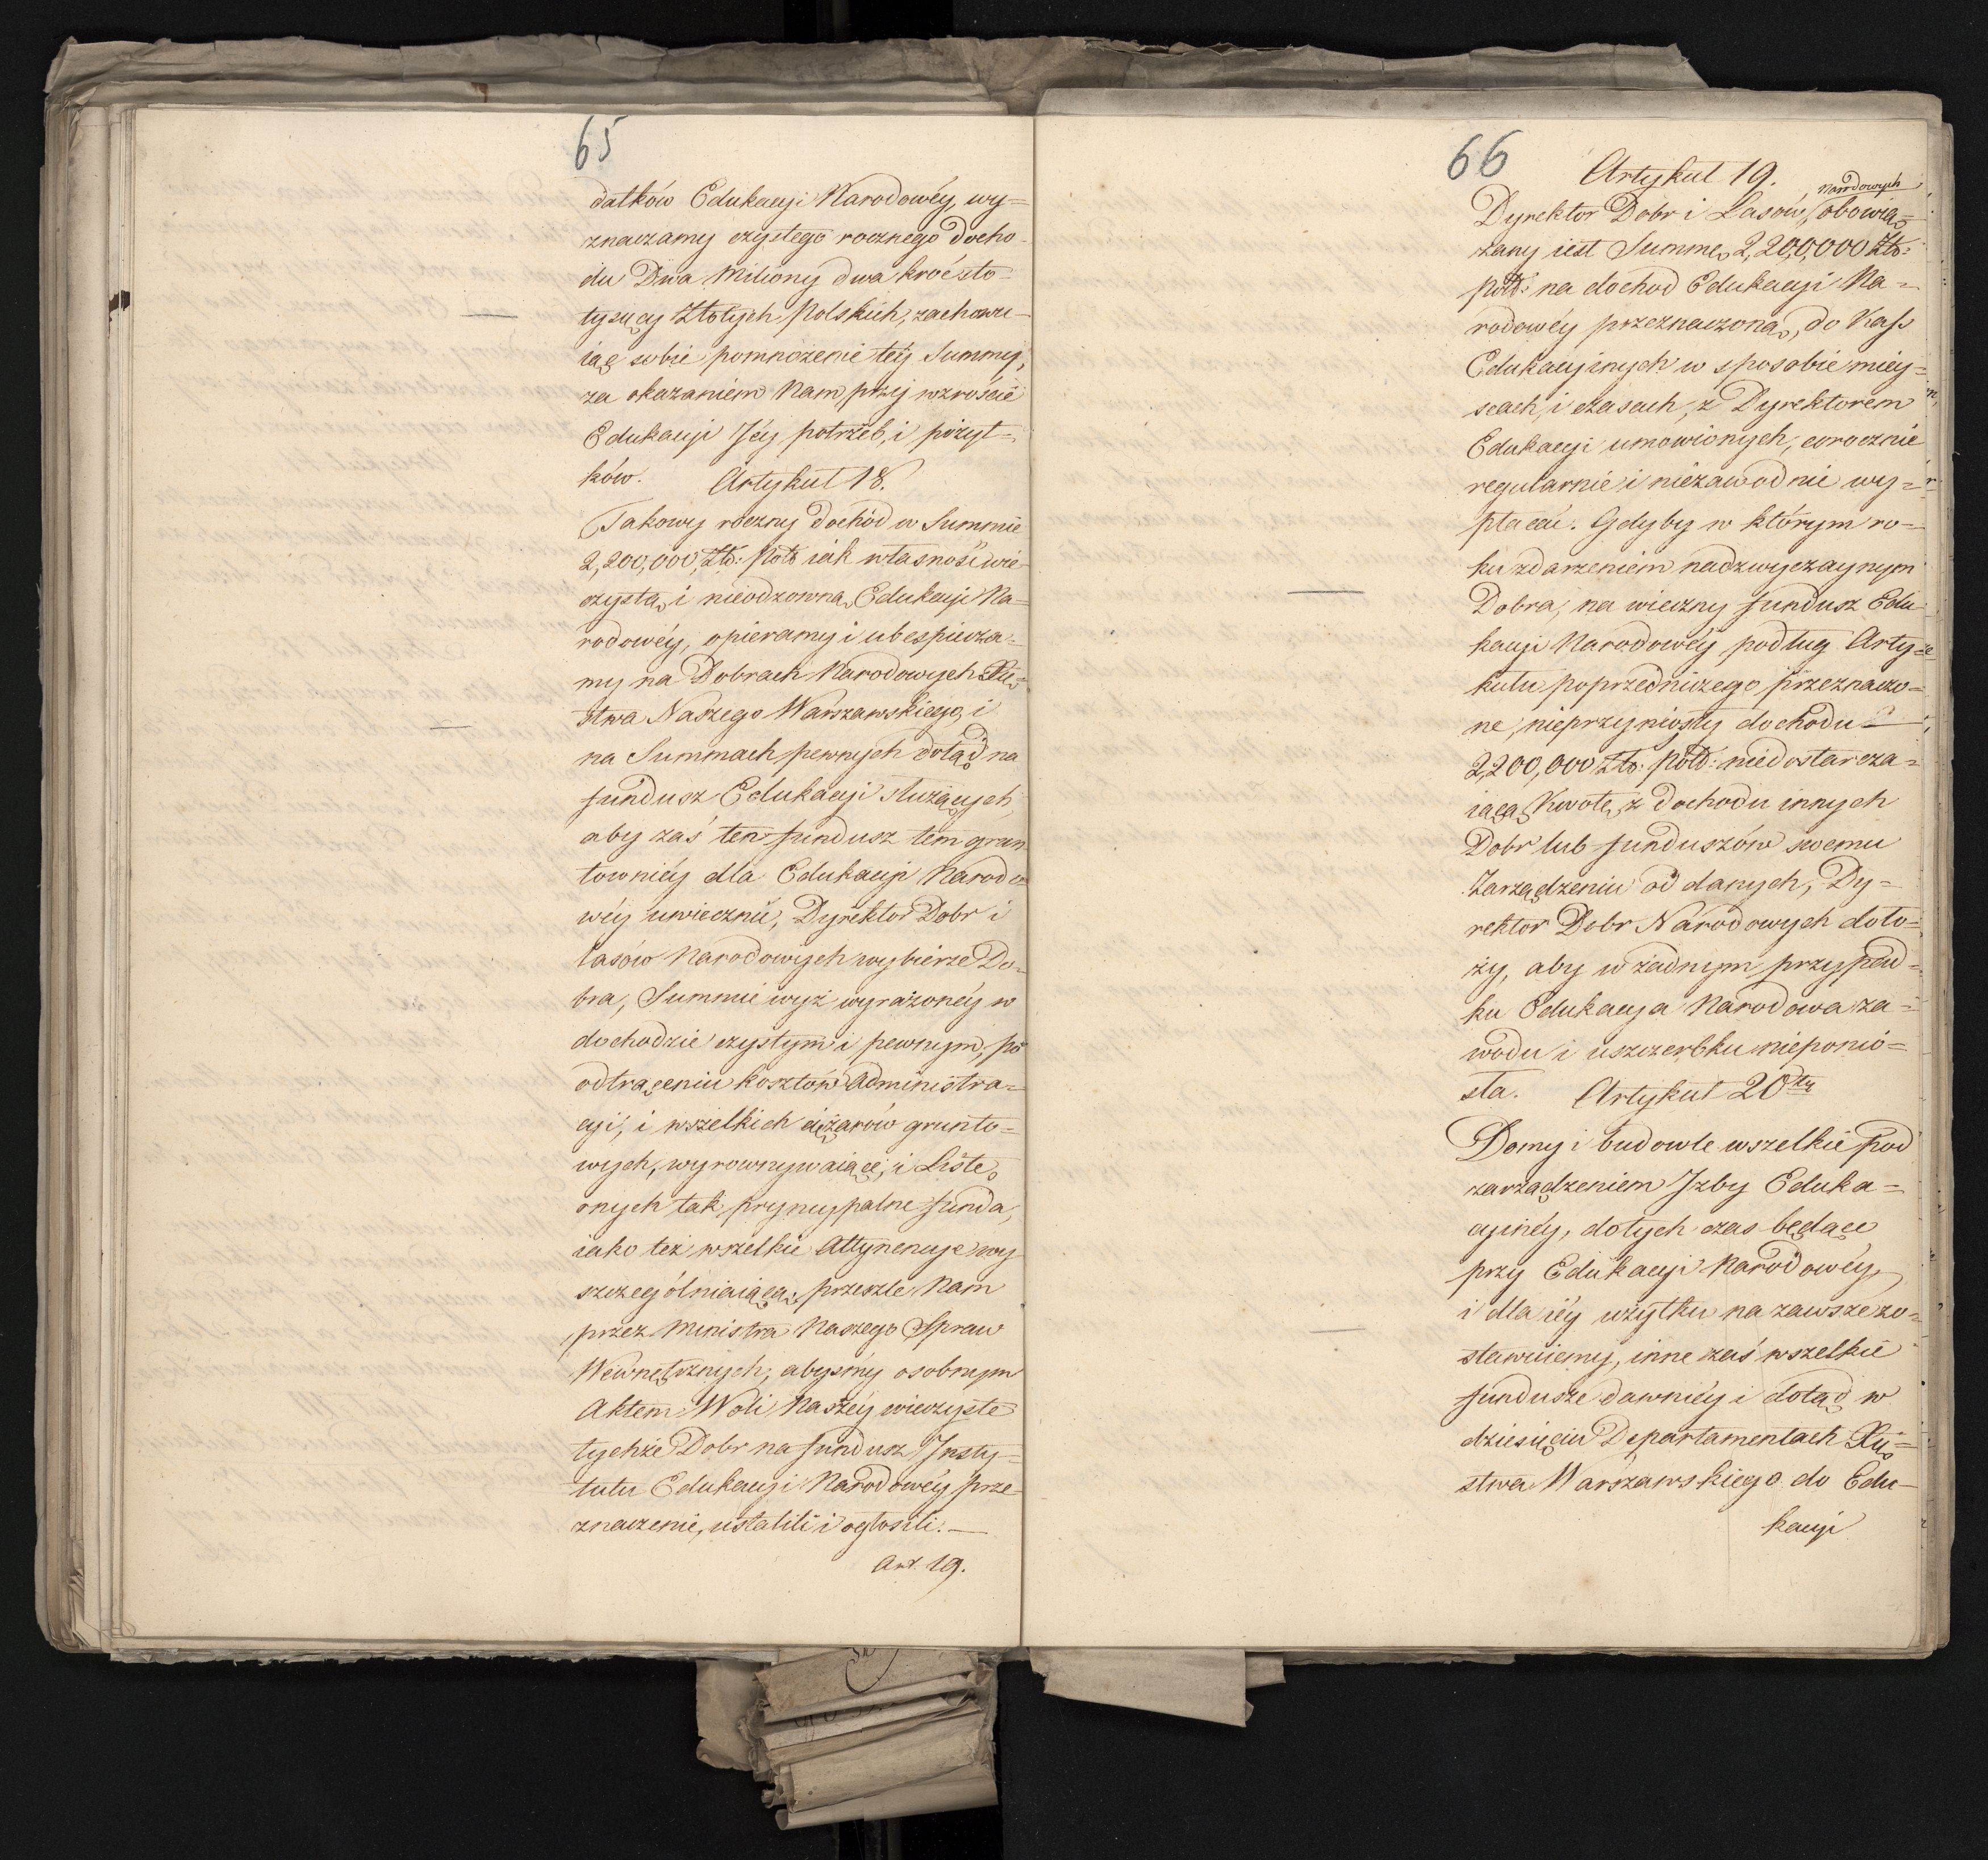 65
datków Edukacyi Narodowéy, wy=
znaczamy czystego rocznego docho-
du Dwa Miliony dwa kroć sto=
tysięcy Złotych Polskich, zachowu-
iąc sobie pomnożenie téy Summy,
za okazaniem Nam, przy wzroście
Edukacyi Jéy potrzeb, i pożyt=
ków. Artykuł 18.
Takowy roczny dochód w Summie
2,200,000, Złł: Polł iak własność wie-
czystą i nieodzowną, Edukacyi Na=
rodowéy, opieramy i ubespiecza=
my na Dobrach Narodowych Xię=
stwa Naszego Warszawskiego, i
na Summach pewnych dotąd na
fundusz Edukacyi służących,
aby zaś ten fundusz tem grun
towniéy dla Edukacyi Narodo
wéy uwiecznić, Dyrektor Dobr i
lasów Narodowych wybierze Do-
bra, Summie wyż wyrażonéy w
dochodzie czystym i pewnym, po
odtrąceniu kosztów Administra=
cyi, i wszelkich ciężarów grunto=
wych, wyrownywaiące, i Listę
onych tak pryncypalne funda,
iako też wszelkie Attynencye wy
szczególniaiącą, prześle Nam
przez Ministra Naszego Spraw
Wewnętrznych, abyśmy osobnym
Aktem Woli Naszéy wieczyste
tychże Dobr na fundusz Insty=
tutu Edukacyi Narodowéy prze-
znaczenie, ustalili i ogłosili. —
Art. 19.
66 Artykuł 19.
Narodowych
Dyrektor Dobr i Lasów, obowią=
zany iest Summę 2,200,000 Złł:
Polł: na dochod Edukacyi Na=
rodowéy przeznaczoną, do Kass
Edukacyinych w sposobie miey=
scach, i czasach, z Dyrektorem
Edukacyi umowionych, corocznie
regularnie i niezawodnie wy=
płacać. Gdyby w którym ro=
ku zdarzeniem nadzwyczaynym
Dobra, na wieczny fundusz Edu
kacyi Narodowéy podług Arty=
kułu poprzedniczego przeznaczo=
ne, nieprzyniosły dochodu
2,200,000 Złł: Polł: niedostarcza=
iącą Kwotę, z dochodu innych
Dobr lub funduszów swemu
Zarządzeniu oddanych, Dy=
rektor Dobr Narodowych doło=
ży, aby w żadnym przypad=
ku Edukacya Narodowa za=
wodu i uszczerbku nieponio=
sła. Artykuł 20ty
Domy i budowle wszelkie pod
zarządzeniem Izby Eduka=
cyinéy, dotych czas będące
przy Edukacyi Narodowéy,
i dla iéy użytku na zawsze zo=
stawuiemy, inne zaś wszelkie
fundusze dawniéy i dotąd w
dziesięciu Departamentach Xię=
stwa Warszawskiego do Edu-
kacyi